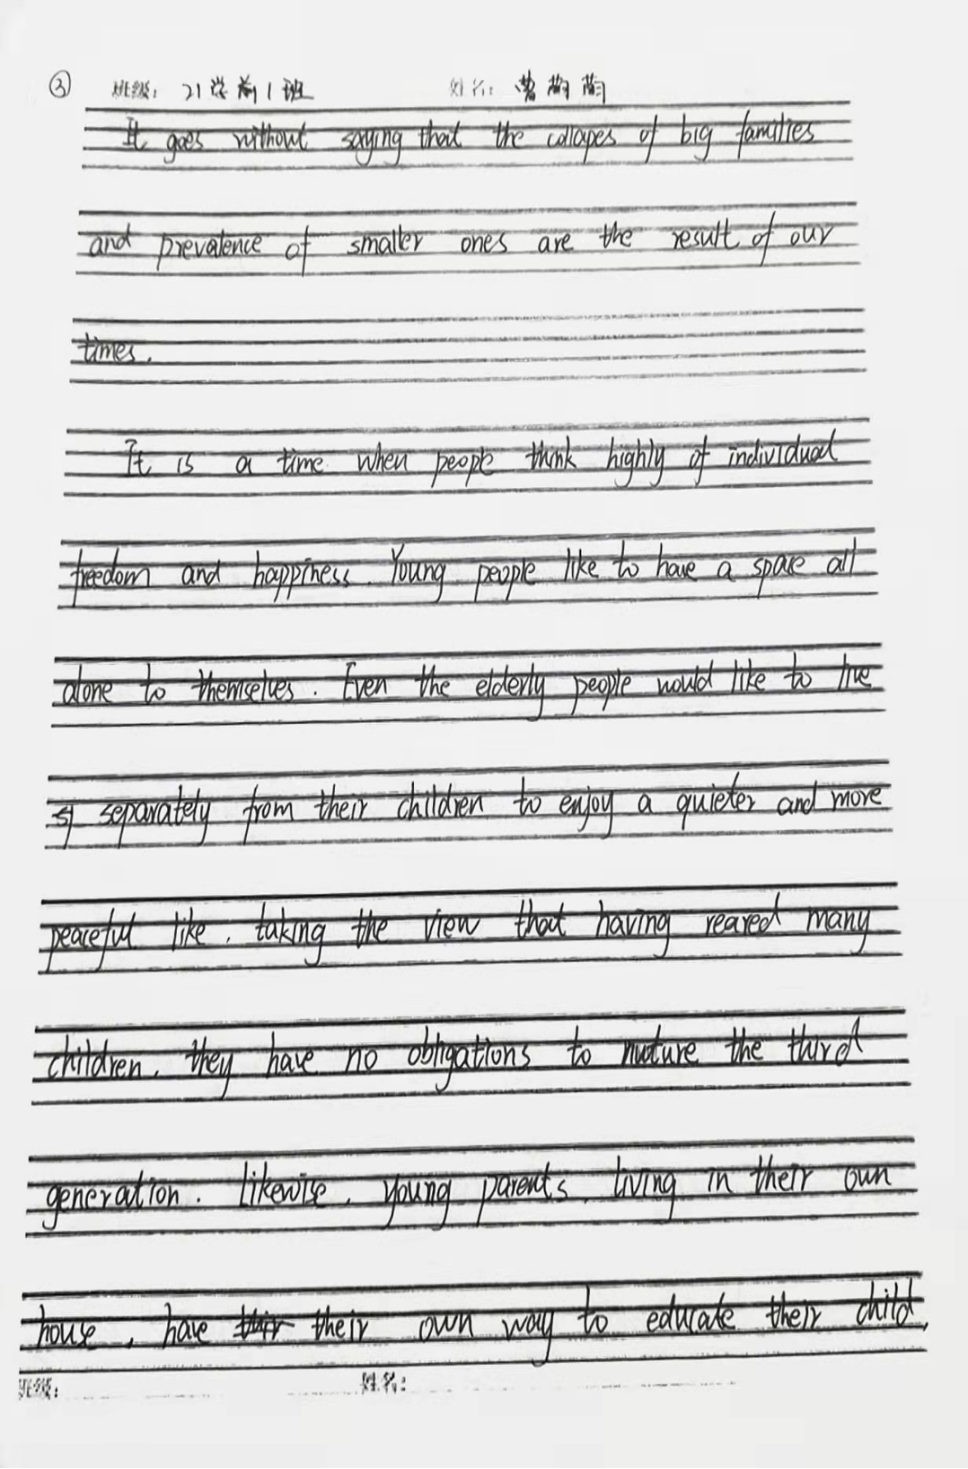 ③ 班级: 21学前1班 姓名: 曹蔄蔄
It goes without saying that the collapes of big families
and prevalence of smaller ones are the result of our
times.
It is a time when people think highly of individual
freedom and happiness. Young people like to have a space all
alone to themselves. Even the elderly people would like to live
separately from their children to enjoy a quieter and more
peaceful like, taking the view that having reared many
children, they have no obligations to nuture the third
generation. Likewise, young parents, living in their own
house, have their own way to educate their child,
班级: 姓名: